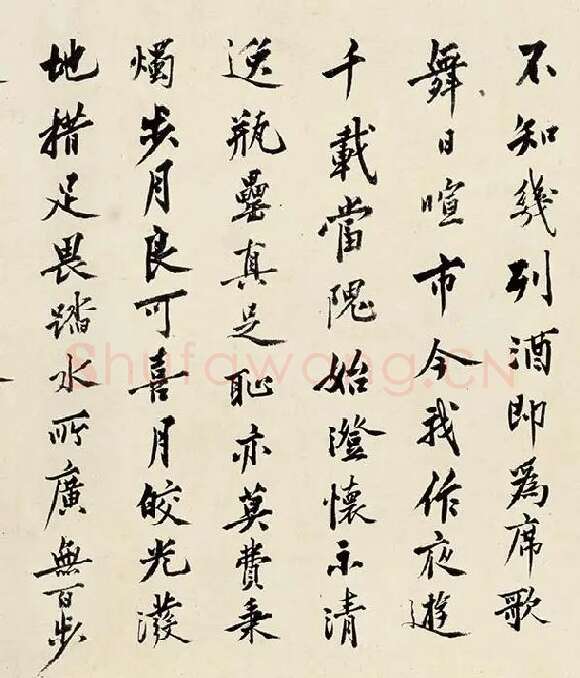 不知幾列酒即爲席歌
舞日喧市今我作夜遊
千載當隗始澄懷示清
逸瓶罍真足恥亦莫費秉
燭步月良可喜月皎光潑
地措足畏踏水所廣無百步
Shufawang.CN